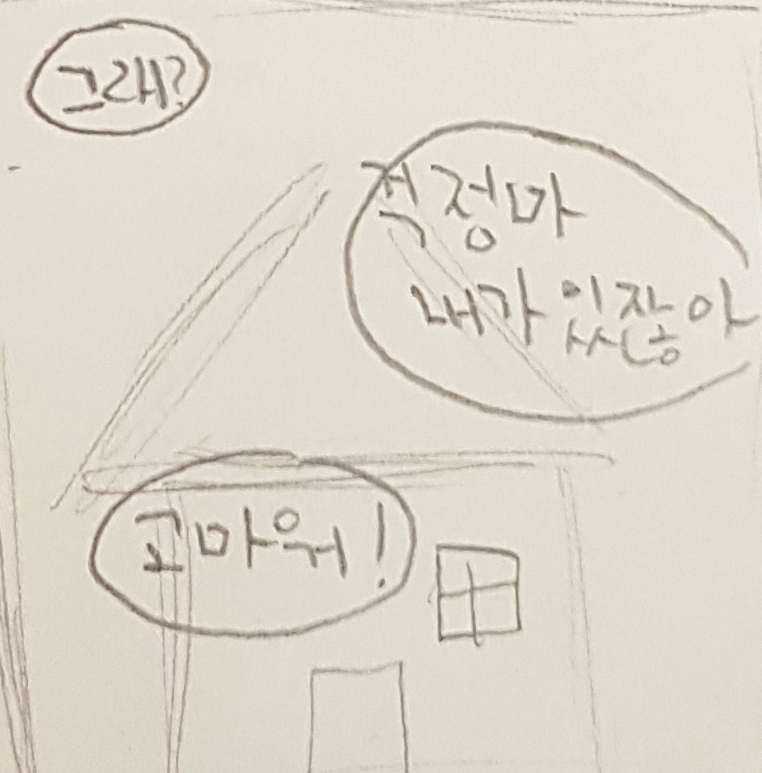 그래?
걱정마
내가있잖아
고마워!